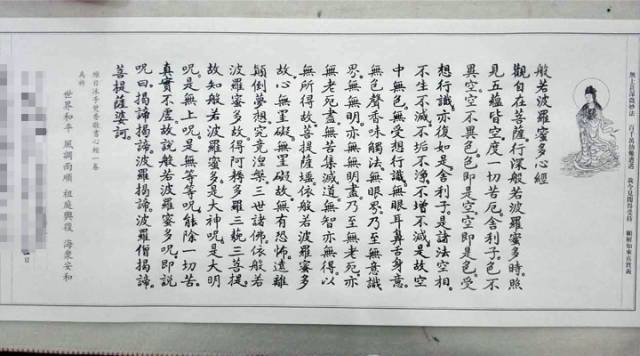 無上甚深微妙法 百千萬劫難遭遇 我今見聞得受持 願解如來真實義
般若波羅蜜多心經
觀自在菩薩行深般若波羅蜜多時。照
見五蘊皆空度一切苦厄。舍利子。色不
異空空不異色色即是空空即是色受
想行識亦復如是舍利子。是諸法空相。
不生不滅不垢不淨不增不減是故空
中無色無受想行識無眼耳鼻舌身意。
無色聲香味觸法無眼界乃至無意識
界。無無明。亦無無明盡乃至無老死亦
無老死盡無苦集滅道無智亦無得以
無所得故菩提薩埵依般若波羅蜜多
故心無罣礙無罣礙故無有恐怖遠離
顛倒夢想究竟涅槃三世諸佛依般若
波羅蜜多故得阿耨多羅三藐三菩提。
故知般若波羅蜜多是大神咒是大明
咒是無上咒是無等等咒能除一切苦
真實不虛故說般若波羅蜜多咒即說
咒曰揭諦揭諦波羅揭諦波羅僧揭諦
菩提薩婆訶。
沐手焚香敬書心經一卷
為祈
世界和平 風調雨順 祖庭興復 海眾安和
日